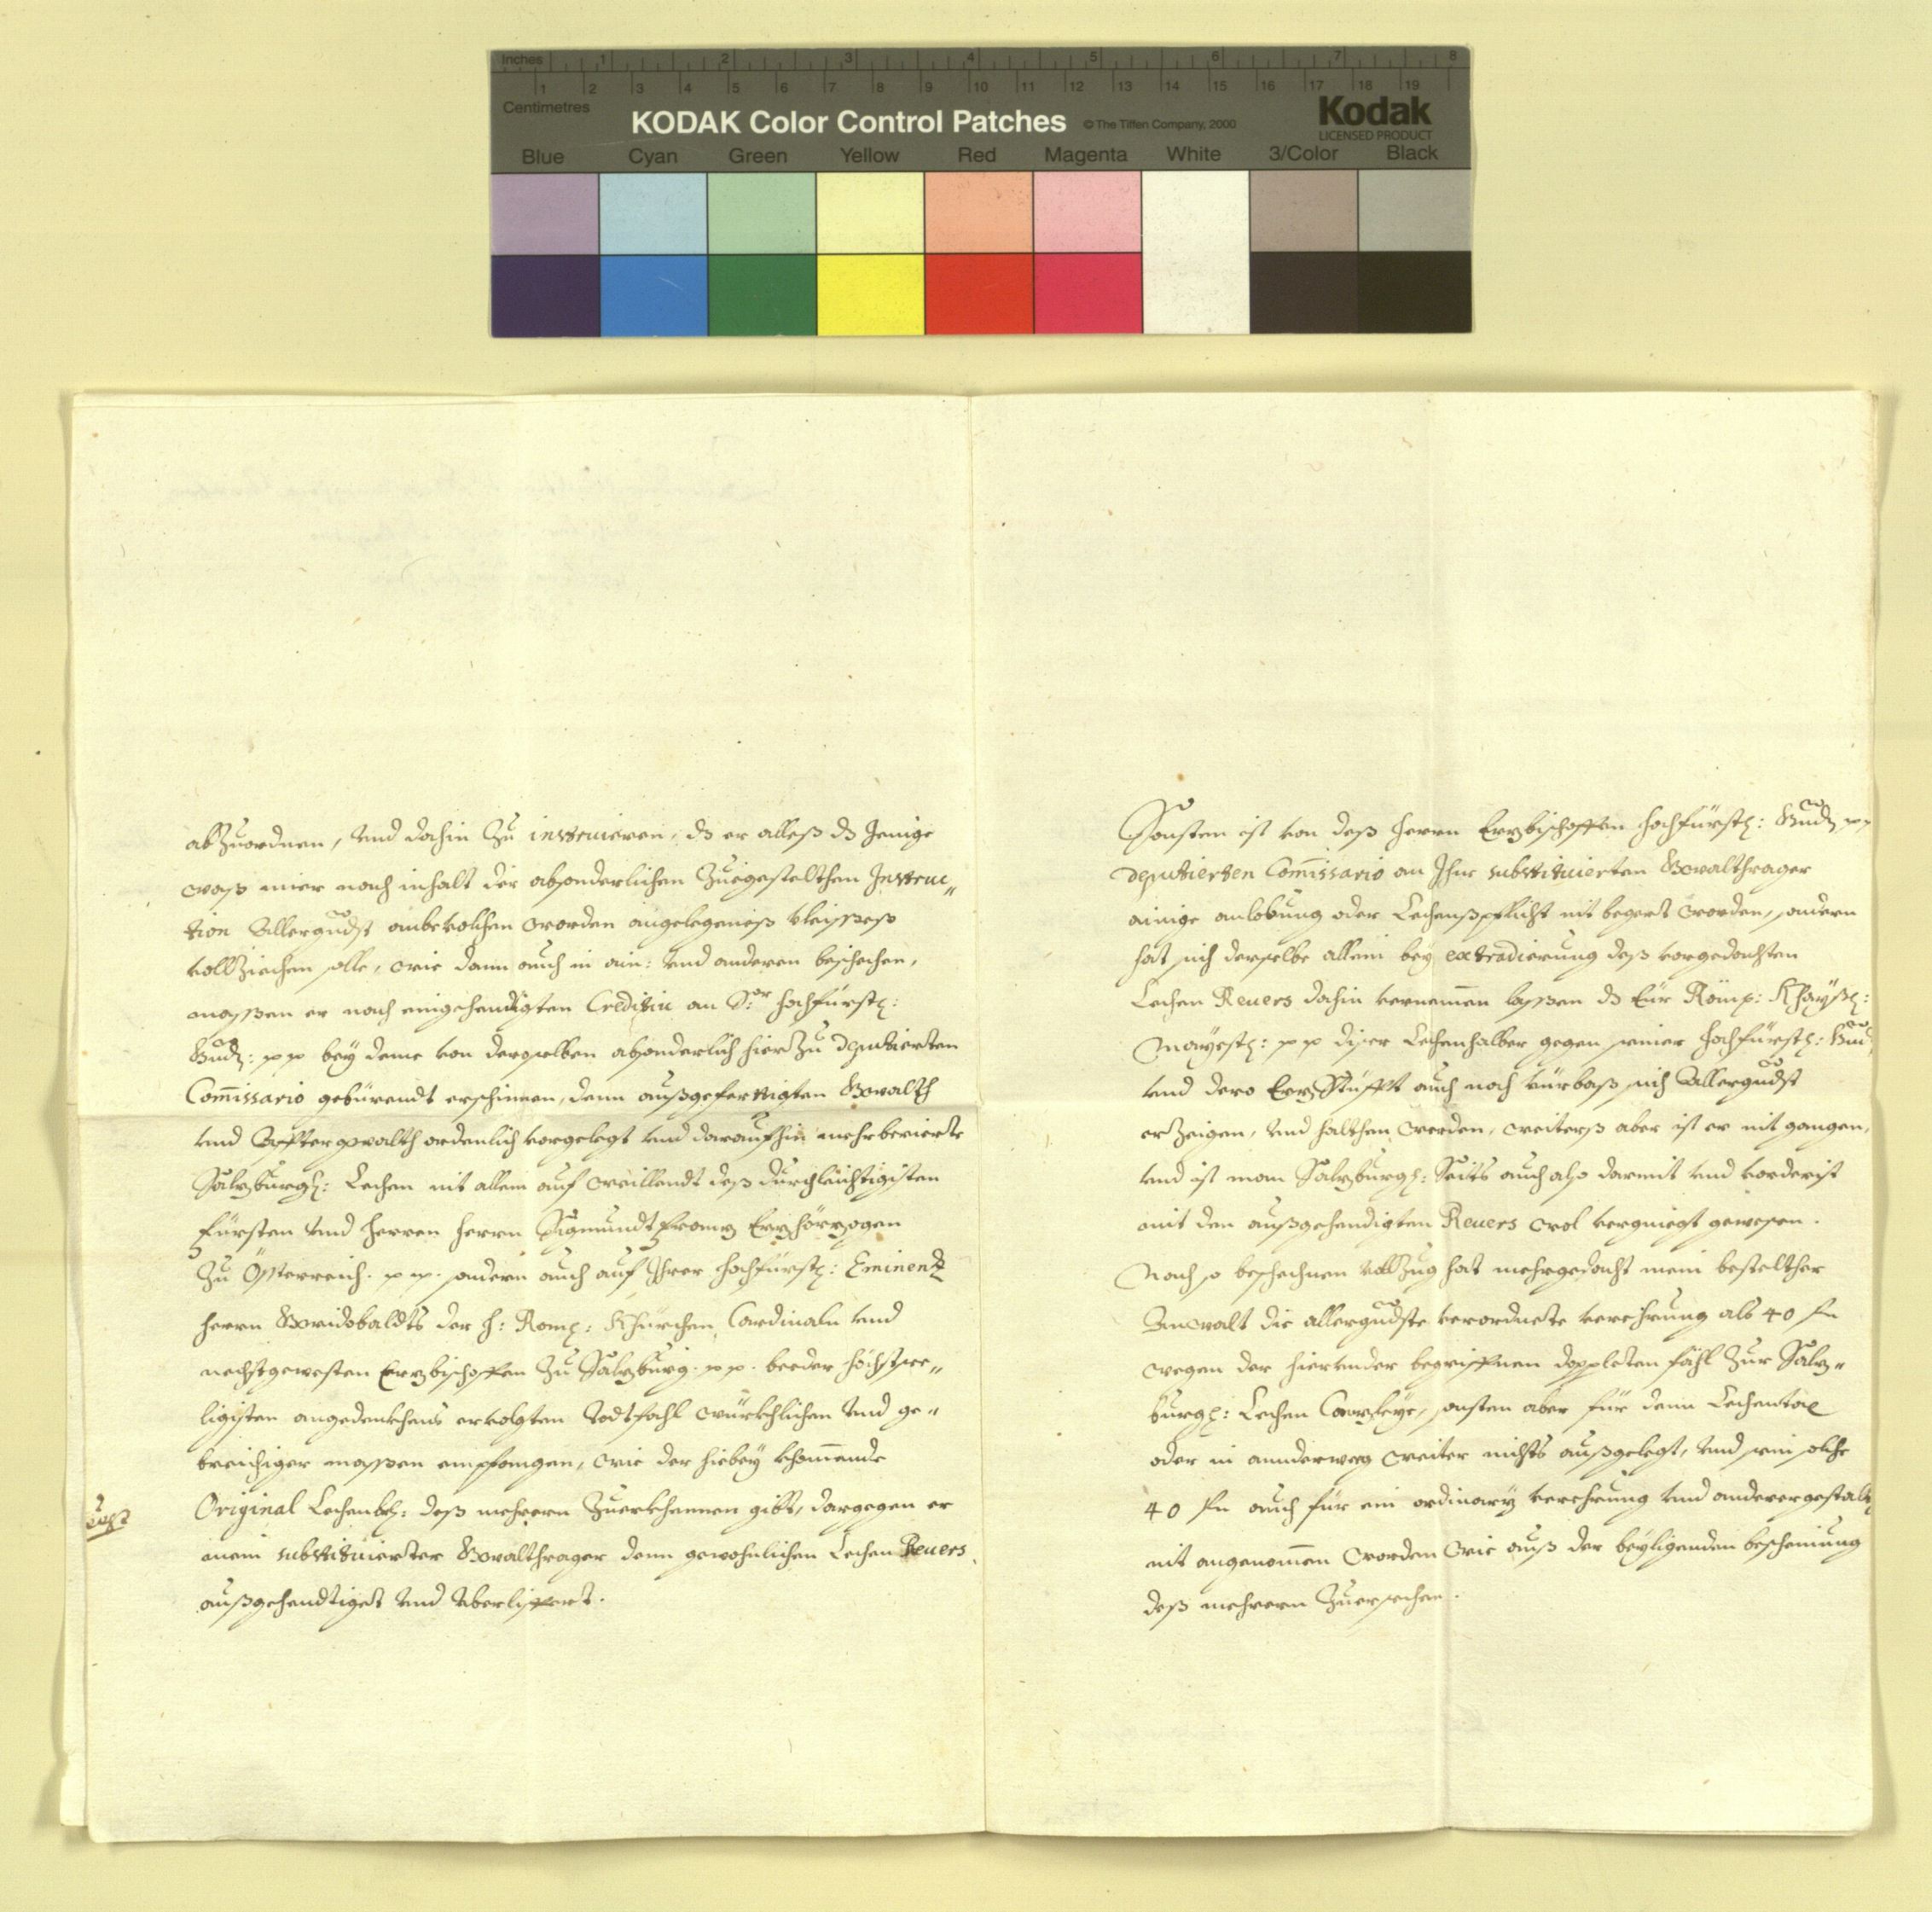 Inches 1 2 3 4 5 6 7 8
1 2 3 4 5 6 7 8 9 10 11 12 13 14 15 16 17 18 19
Centimetres
KODAK Color Control Patches © The Tiffen Company, 2000 Kodak
LICENSED PRODUCT
Blue Cyan Green Yellow Red Magenta White 3/Color Black
abzuordnen, und dahin zu instruieren, dz er alleß dz Jenige
waß mier nach inhalt der absonderlichen Zuegestelthen Instruc„
tion Allergndst anbevolchen worden angelegnisß vleisseß
vollziechen solle, wie dann auch in ain: und anderen beschechen,
massen er nach eingehendigten Creditiv an Sr: hochfürstl:
Gnd: pp bey deme von derselben absonderlich hierzu deputierten
Comissario gebürendt erschinen, denn außgefertigten Gwalth
und Afftergwalth ordenlich vorgelegt und daraufhin mehrberierte
Salzburgl: Lechen nit allein auf weillendt deß durchleichtigisten
Fürsten und Herren Herrn Sigmundt Franz Erzhörzogen
zu Össterreich. pp. sondern auch auf Ihrer hochfürstl: Eminentz
Herrn Gwidobaldts der H: Röml: Khürchen Cardinaln und
nechstgewesten Erzbischoffen zu Salzburg. pp. beeder höchstsee„
ligisten angedenkhens ervolgten Todtfahl würkhlichen und ge„
breichiger massen empfangen, wie der hiebey khomende
Original Lechenbr: deß mehrern Zuerkhennen gibt, dargegen er
mein substituierter Gwalthrager denn gewohnlichen Lechen Revers
außgehendtiget und uberliffert.
Sonsten ist von deß Herrn Erzbischoffen hochfürstl: Gnd pp
deputierten Comissario an Ihne substituierten Gwalthrager
ainige anlobung oder Lechenßpflicht nit begert worden, sondern
hat sich derselbe allein bey extradierung deß vorgedachten
Lechen Revers dahin vernemen lassen dz Eür Römß: Khayßl:
Mayestl: pp diser Lechenhalber gegen seiner hochfürstl: Gnd
und dero Erzstüfft auch noch fürbaß sich Allergndst
erzeigen, und halthen werden, weiterß aber ist er nit gangen,
und ist man Salzburgl: Seits auch also darmit und vorderist
mit den außgehendigten Revers wol vergniegt gewesen.
Nach so beschechnen vollzug hat mehrgedacht mein bestelther
Anwalt die allergndste verordnete verehrung als 40 fn
wegen der hierunder begriffnen dopleten fähl zur Salz„
burgl: Lechen Canzleye, sonsten aber für denn Lechentax
oder in annderweg weiter nichts außgelegt, und sein solche
40 fn auch für ein ordinary verehrung und anderergestalt
nit angenomen worden wie auß der beyligenden bescheinung
deß mehrern Zuersechen.